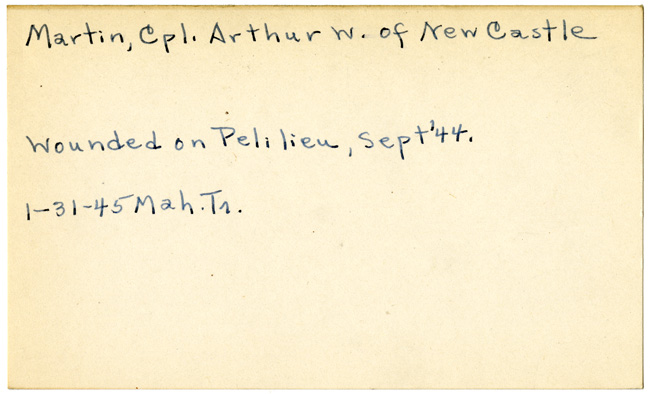 Martin, Cpl. Arthur W. of New Castle
Wounded on Pelilieu, Sept '44.
1-31-45 Mah. Tr.